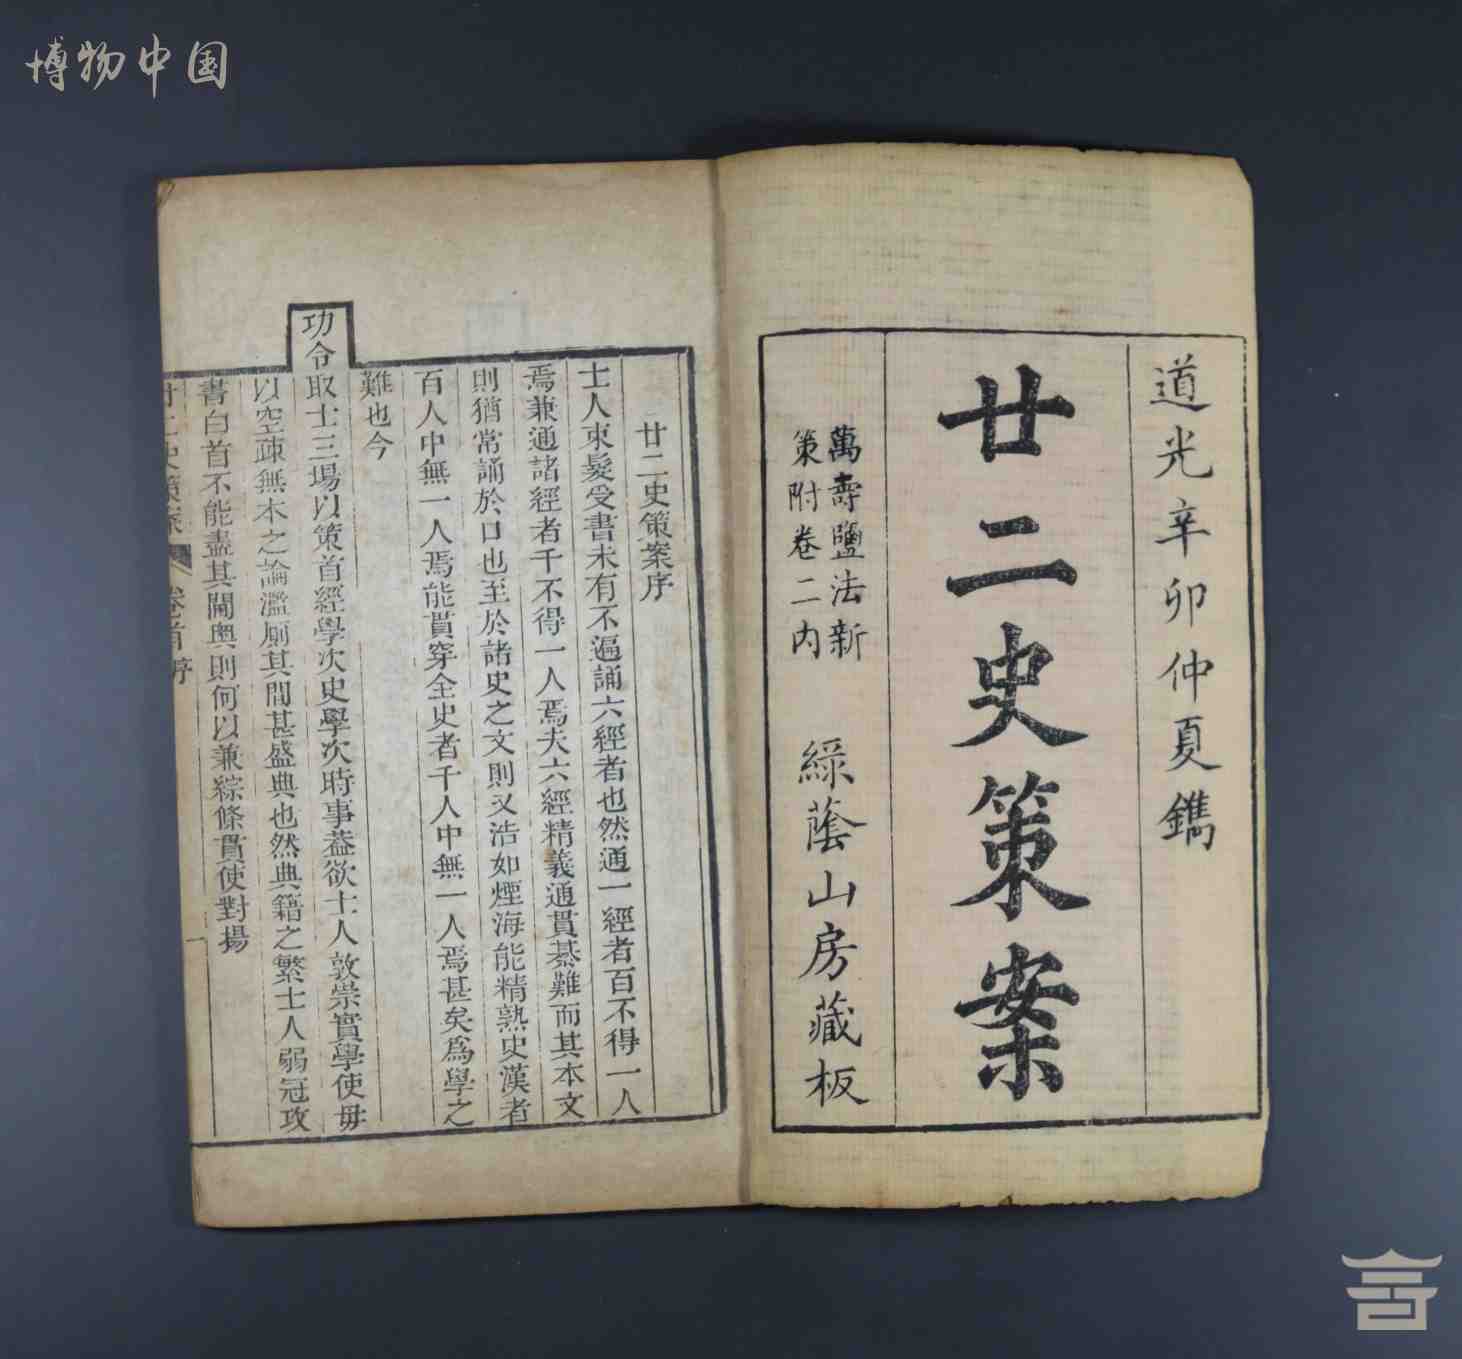 博物中国
道光辛卯仲夏鐫
廿二史策案
萬壽鹽法新
策附卷二内
綠蔭山房藏板
廿二史策案序
士人束髮受書未有不遍誦六經者也然通一經者百不得一人
焉兼通諸經者千不得一人焉夫六經精義通貫綦難而其本文
則猶常誦於口也至於諸史之文則又浩如煙海能精熟史漢者
百人中無一人焉能貫穿全史者千人中無一人焉甚矣爲學之
難也今
功令取士三場以策首經學次史學次時事蓋欲士人敦崇實學使毋
以空疎無本之論濫厠其間甚盛典也然典籍之繁士人弱冠攻
書白首不能盡其閫奥則何以兼綜條貫使對揚
廿二史策案 卷首序 一